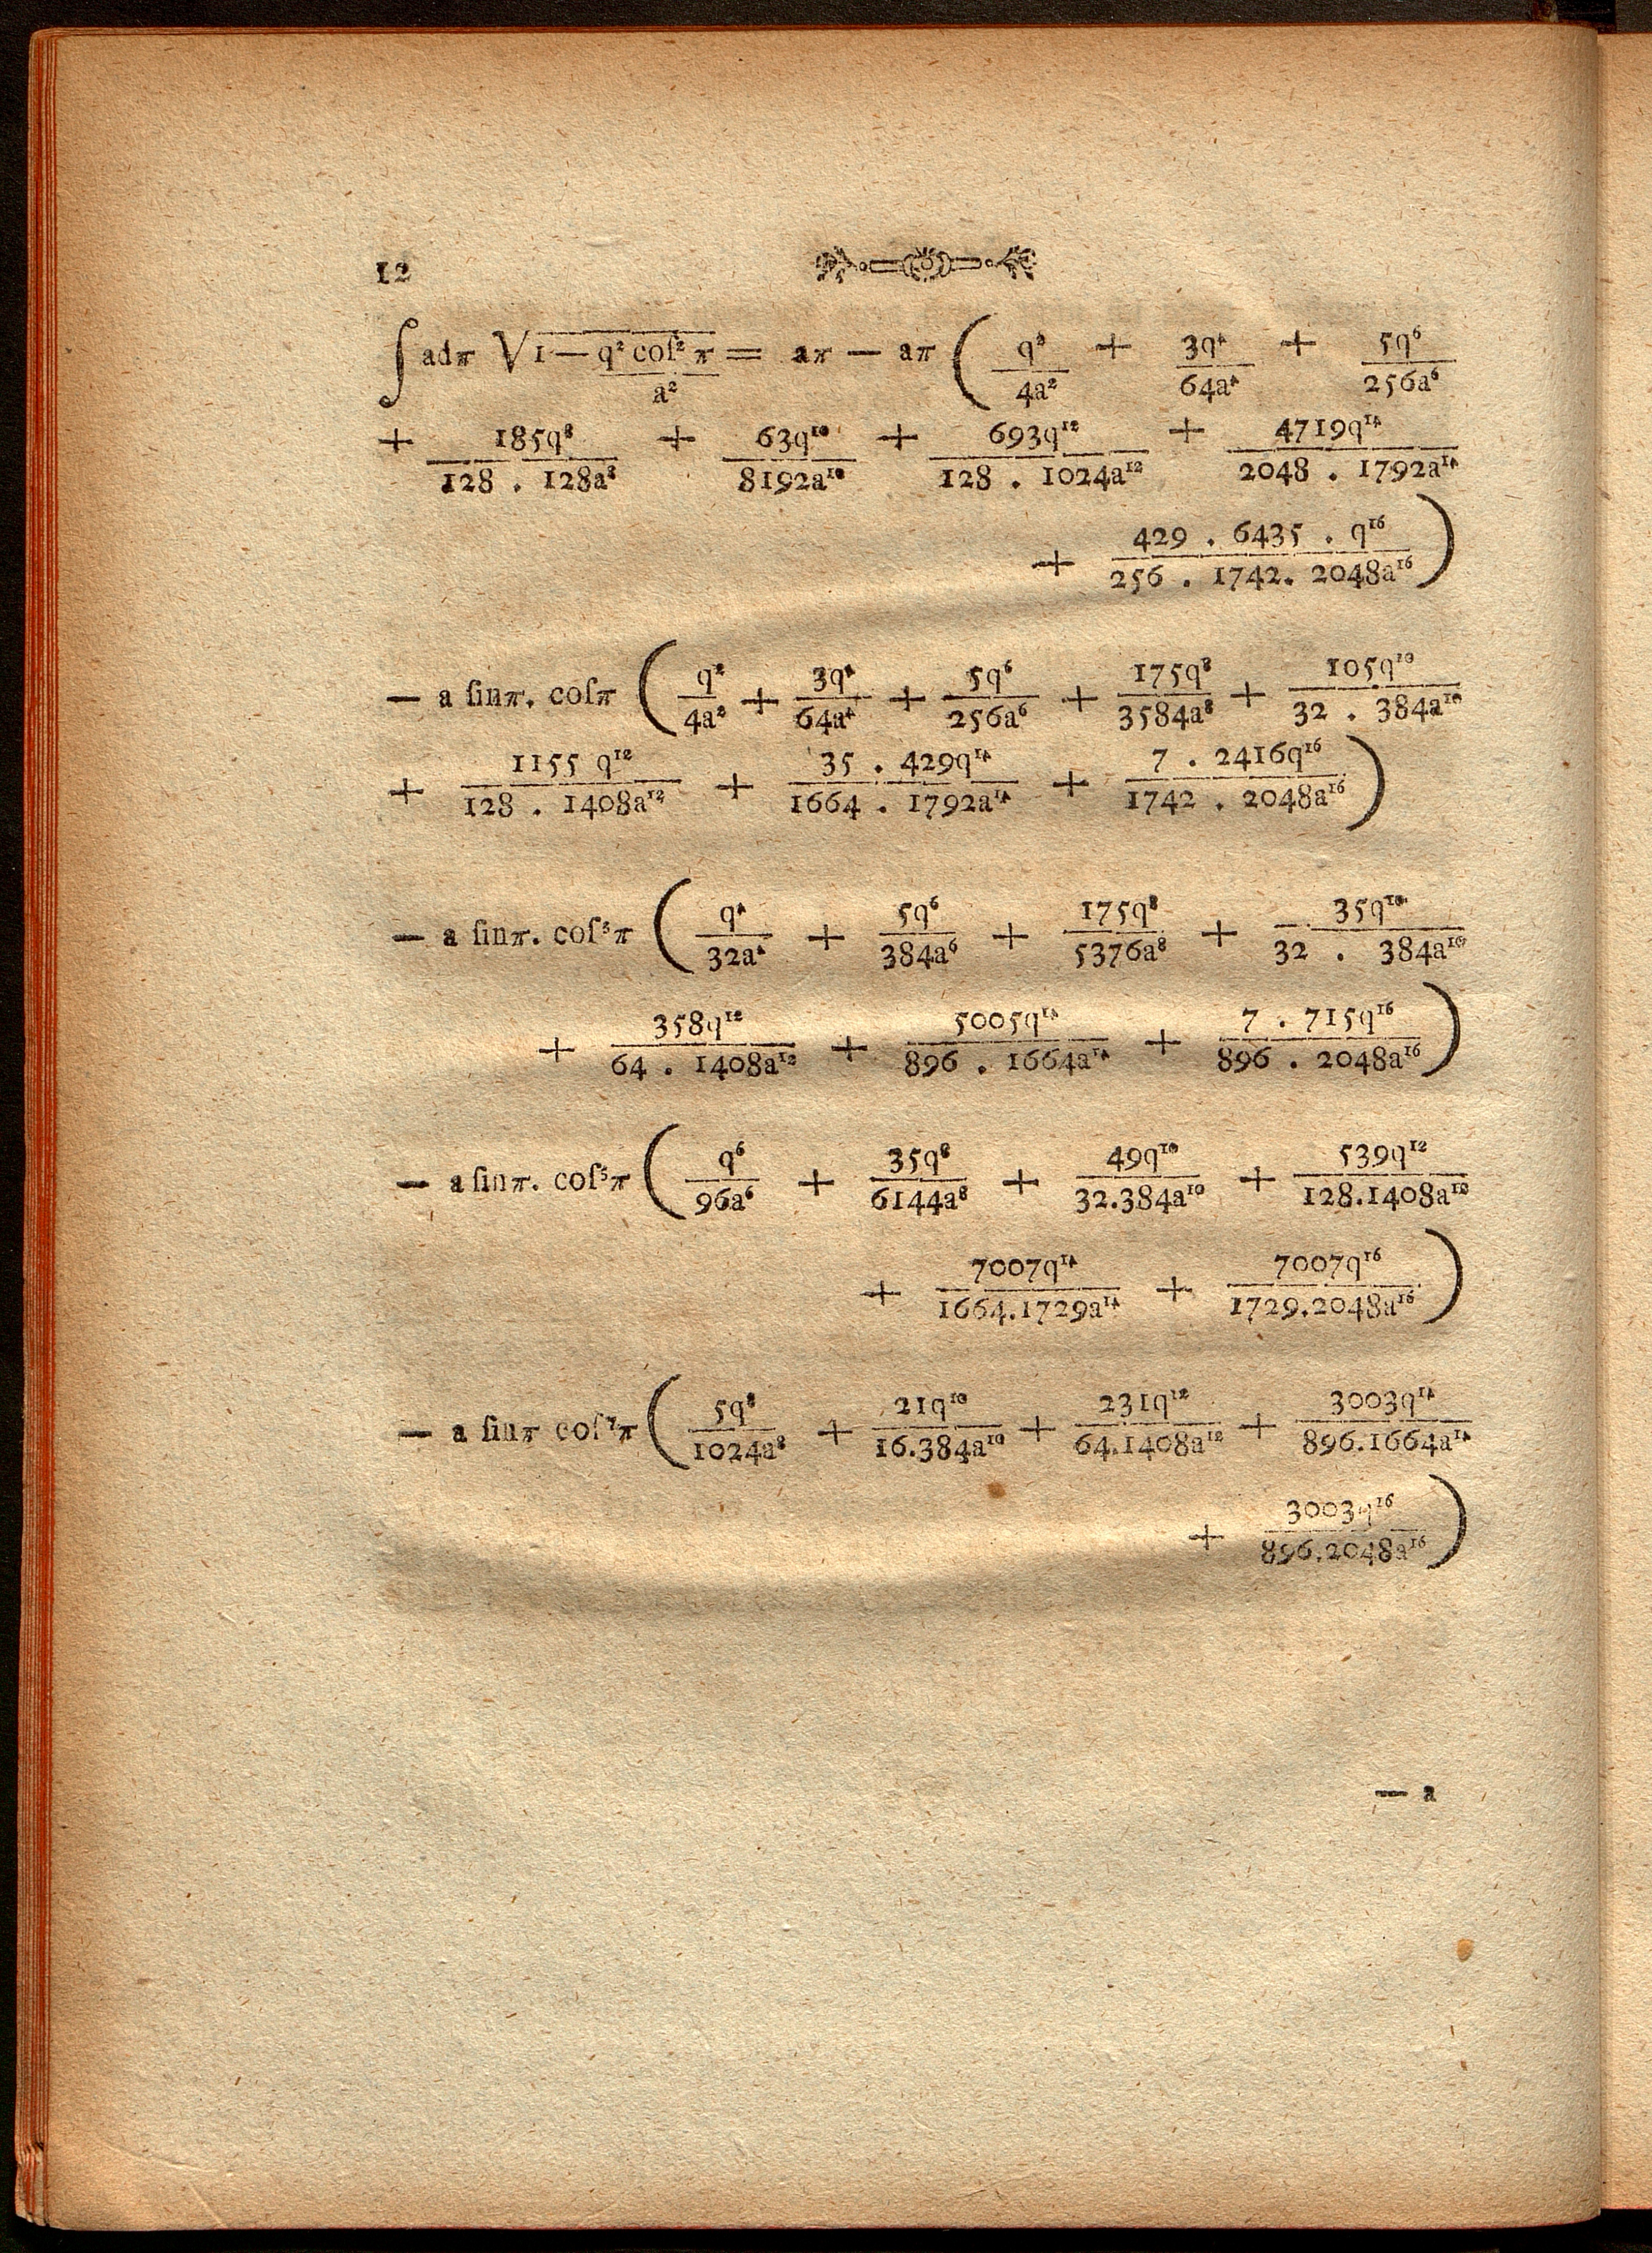 12
∫ adπ √1 — q² coſ² π / a² = aπ — aπ ( q²/4a² + 3q⁴/64a⁴ + 5q⁶/256a⁶
+ 185q⁸/128 . 128a⁸ + 63q¹⁰/8192a¹⁰ + 693q¹²/128 . 1024a¹² + 4719q¹⁴/2048 . 1792a¹⁴
+ 429 . 6435 . q¹⁶/256 . 1742. 2048a¹⁶ )
— a ſinπ. coſπ ( q²/4a² + 3q⁴/64a⁴ + 5q⁶/256a⁶ + 175q⁸/3584a⁸ + 105q¹⁰/32 . 384a¹⁰
+ 1155 q¹²/128 . 1408a¹² + 35 . 429q¹⁴/1664 . 1792a¹⁴ + 7 . 2416q¹⁶/1742 . 2048a¹⁶ )
— a ſinπ. coſ³π ( q⁴/32a⁴ + 5q⁶/384a⁶ + 175q⁸/5376a⁸ + 35q¹⁰/32 . 384a¹⁰
+ 358q¹²/64 . 1408a¹² + 5005q¹⁴/896 . 1664a¹⁴ + 7 . 715q¹⁶/896 . 2048a¹⁶ )
— a ſinπ. coſ⁵π ( q⁶/96a⁶ + 35q⁸/6144a⁸ + 49q¹⁰/32.384a¹⁰ + 539q¹²/128.1408a¹²
+ 7007q¹⁴/1664.1729a¹⁴ + 7007q¹⁶/1729.2048a¹⁶ )
— a ſinπ coſ⁷π ( 5q⁸/1024a⁸ + 21q¹⁰/16.384a¹⁰ + 231q¹²/64.1408a¹² + 3003q¹⁴/896.1664a¹⁴
+ 3003q¹⁶/896.2048a¹⁶ )
— a